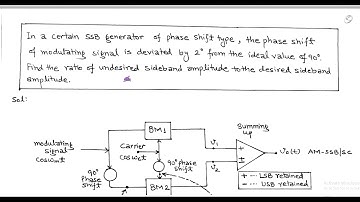 In a certain SSB generator of phase shift type, the phase shift
of modulating signal is deviated by 2° from the ideal value of 90°.
Find the ratio of undesired sideband amplitude to the desired sideband
amplitude.
Sol:
BM1
Summing
up
modulating
signal
cosωmt
Carrier
cosωct
90° phase
shift
90°
Phase
shift
BM2
v1
v2
+
±
v0(t) AM-SSB/SC
+ ... LSB retained
- ... USB retained